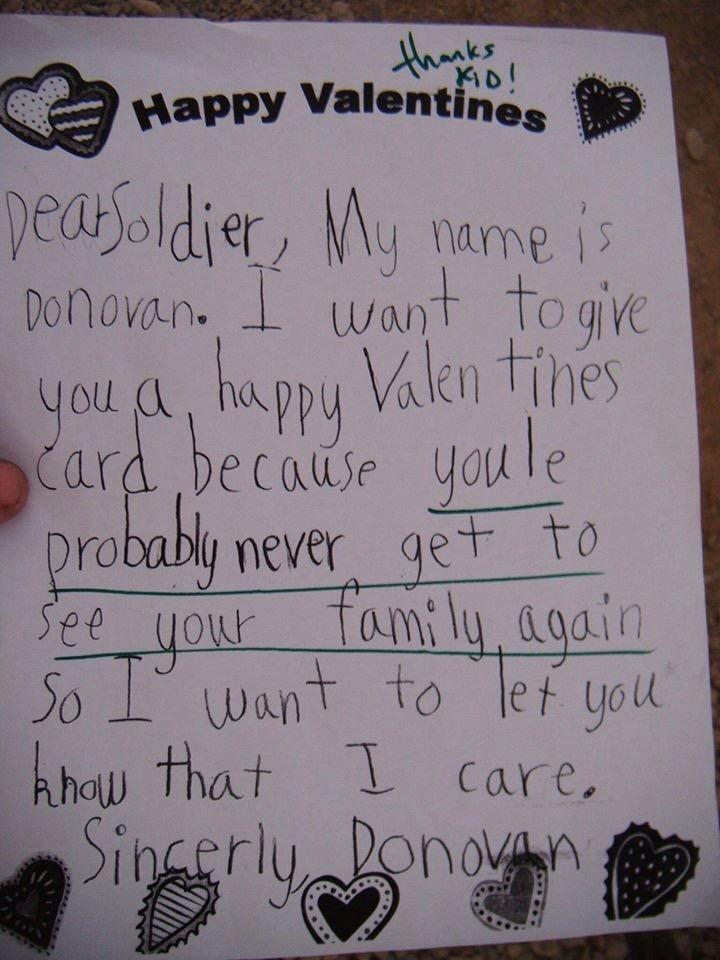 thanks
KiD!
Happy Valentines
Dear Soldier, My name is
Donovan. I want to give
you a happy Valentines
card because youle
probably never get to
see your family again
So I want to let you
know that I care.
Sincerly, Donovan